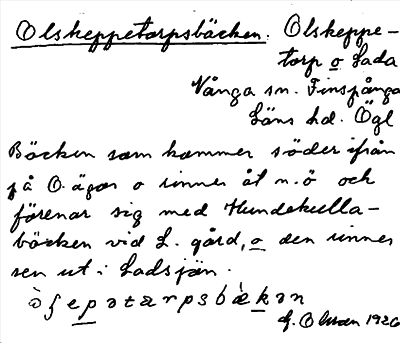 Olskeppetorpsbäcken. Olskeppe-
torp o Lada
Vånga sn. Finspånga
Läns hd. Ögl
Bäcken som kommer söder ifrån
på O. ägor o rinner åt n.ö och
förenar sig med Hundekulla-
bäcken vid L. gård, o den rinner
sen ut i Ladsjön.
òʃepətarpsbæ̀kən
G. Olson 1926